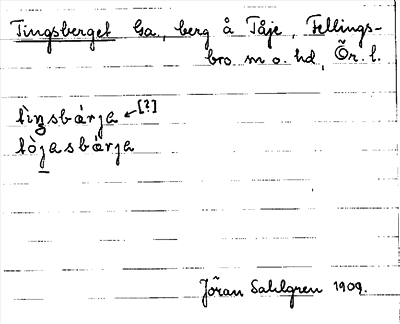 Tingsberget Ga., berg å Tåje, Fellings-
bro sn o. hd, Ör. l.
tiŋsbàrja ←[?]
tòjasbàrja
Jöran Sahlgren 1909.